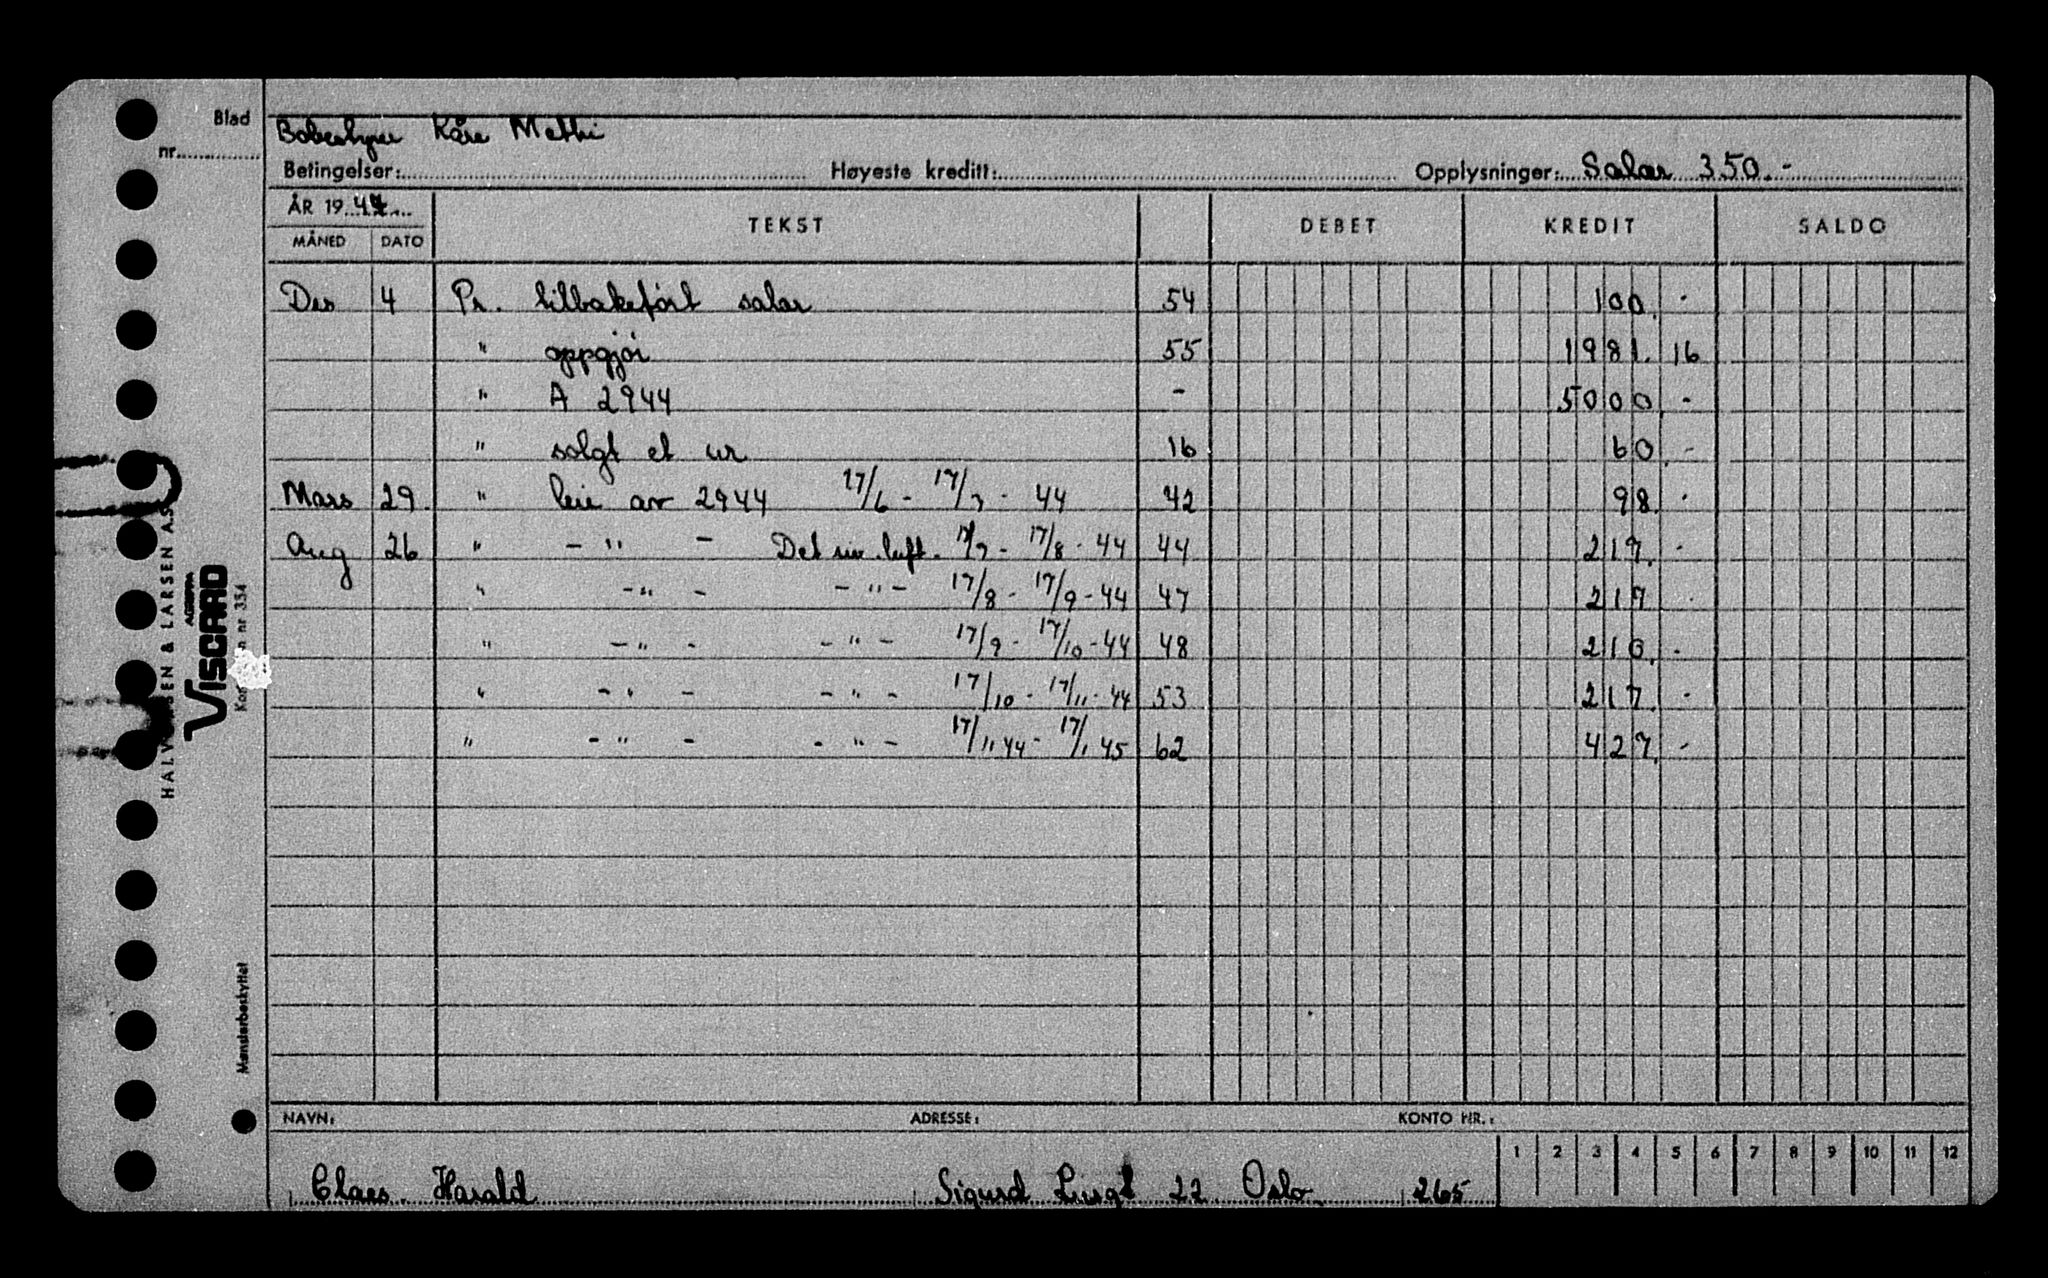 Blad
nr.
Bobestyrer Kåre Methi
Betingelser: Høyeste kreditt: Opplysninger: Salær 350.-
ÅR 1944 TEKST DEBET KREDIT SALDO
MÅNED DATO
Des 4 Pr. tilbakeført salær 54 100.-
" oppgjør 55 1981.16
" A 2944 - 5000.-
" solgt et ur 16 60.-
Mars 29. " leie av 2944 17/6 - 17/7 - 44 42 98.-
Aug 26 " - " - Det siv. luft. 17/7 - 17/8 - 44 44 217.-
" - " - - " - 17/8 - 17/9 - 44 47 217 -
" - " - - " - 17/9 - 17/10 - 44 48 210.-
" - " - - " - 17/10 - 17/11 - 44 53 217.-
" - " - - " - 17/11 44 - 17/1 45 62 427.-
HALVORSEN & LARSEN A.S
AGRIPPA
VISCARD
nr 354
Mønsterbeskyttet
NAVN: ADRESSE: KONTO NR.:
1 2 3 4 5 6 7 8 9 10 11 12
Claes. Harald Sigurd 22 Oslo 265